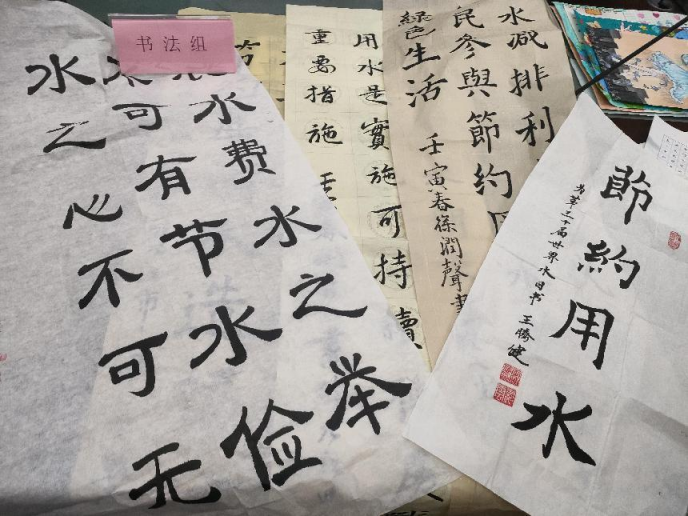 书法组
水费水之举
不可有节水俭
水之心不可无
用水是實施可持續
重要措施
水减排利
民参與節約
綠色生活
壬寅春徐潤聲書
節約用水
为苐三十届世界水日书 王勝健